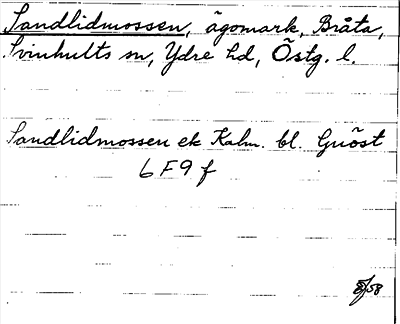 Sandlidmossen, ägomark, Bråta,
Svinhults sn, Ydre hd, Östg. l.
Sandlidmossen ek Kalm. bl. Gnöst
6 F 9 f